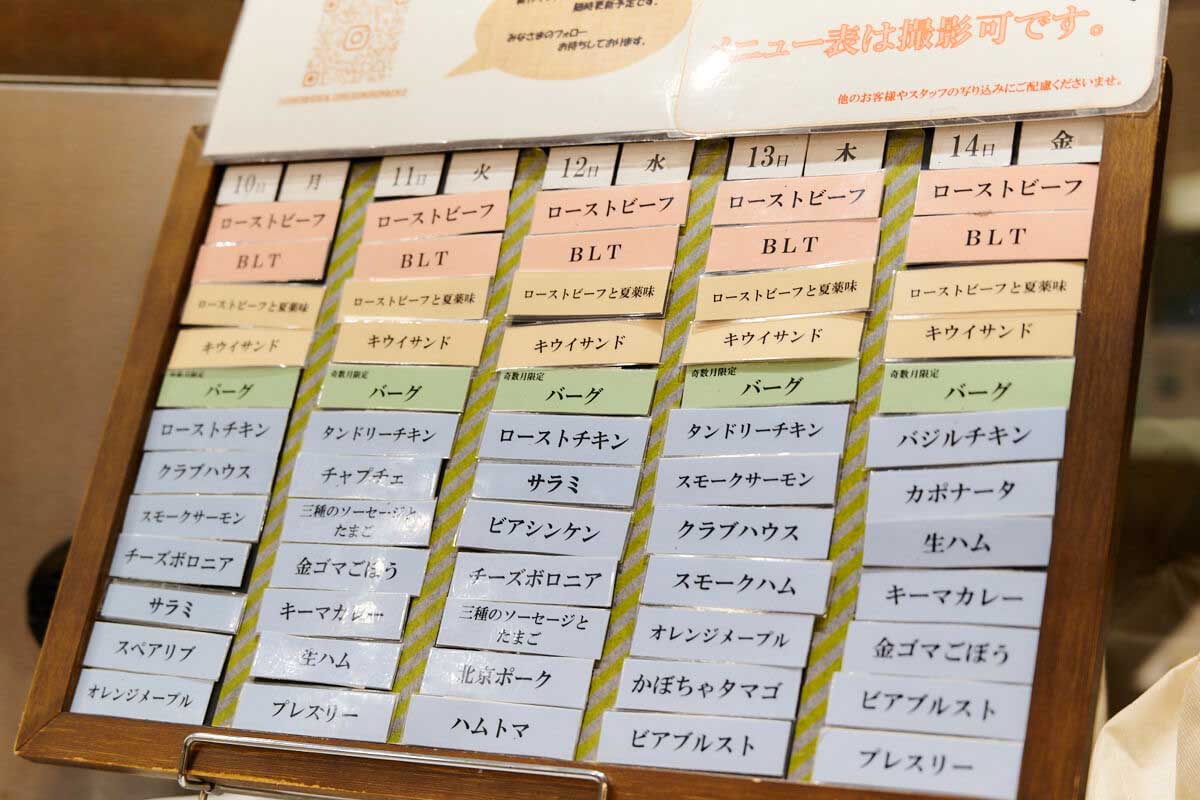 随時更新予定です。
みなさまのフォロー
お待ちしております。
メニュー表は撮影可です。
他のお客様やスタッフの写り込みにご配慮くださいませ。
10日 月
ローストビーフ
BLT
ローストビーフと夏薬味
キウイサンド
バーグ
ローストチキン
クラブハウス
スモークサーモン
チーズボロニア
サラミ
スペアリブ
オレンジメープル
11日 火
ローストビーフ
BLT
ローストビーフと夏薬味
キウイサンド
奇数月限定
バーグ
タンドリーチキン
チャプチェ
三種のソーセージと
たまご
金ゴマごぼう
キーマカレー
生ハム
プレスリー
12日 水
ローストビーフ
BLT
ローストビーフと夏薬味
キウイサンド
奇数月限定
バーグ
ローストチキン
サラミ
ビアシンケン
チーズボロニア
三種のソーセージと
たまご
北京ポーク
ハムトマ
13日 木
ローストビーフ
BLT
ローストビーフと夏薬味
キウイサンド
奇数月限定
バーグ
タンドリーチキン
スモークサーモン
クラブハウス
スモークハム
オレンジメープル
かぼちゃタマゴ
ビアブルスト
14日 金
ローストビーフ
BLT
ローストビーフと夏薬味
キウイサンド
奇数月限定
バーグ
バジルチキン
カポナータ
生ハム
キーマカレー
金ゴマごぼう
ビアブルスト
プレスリー